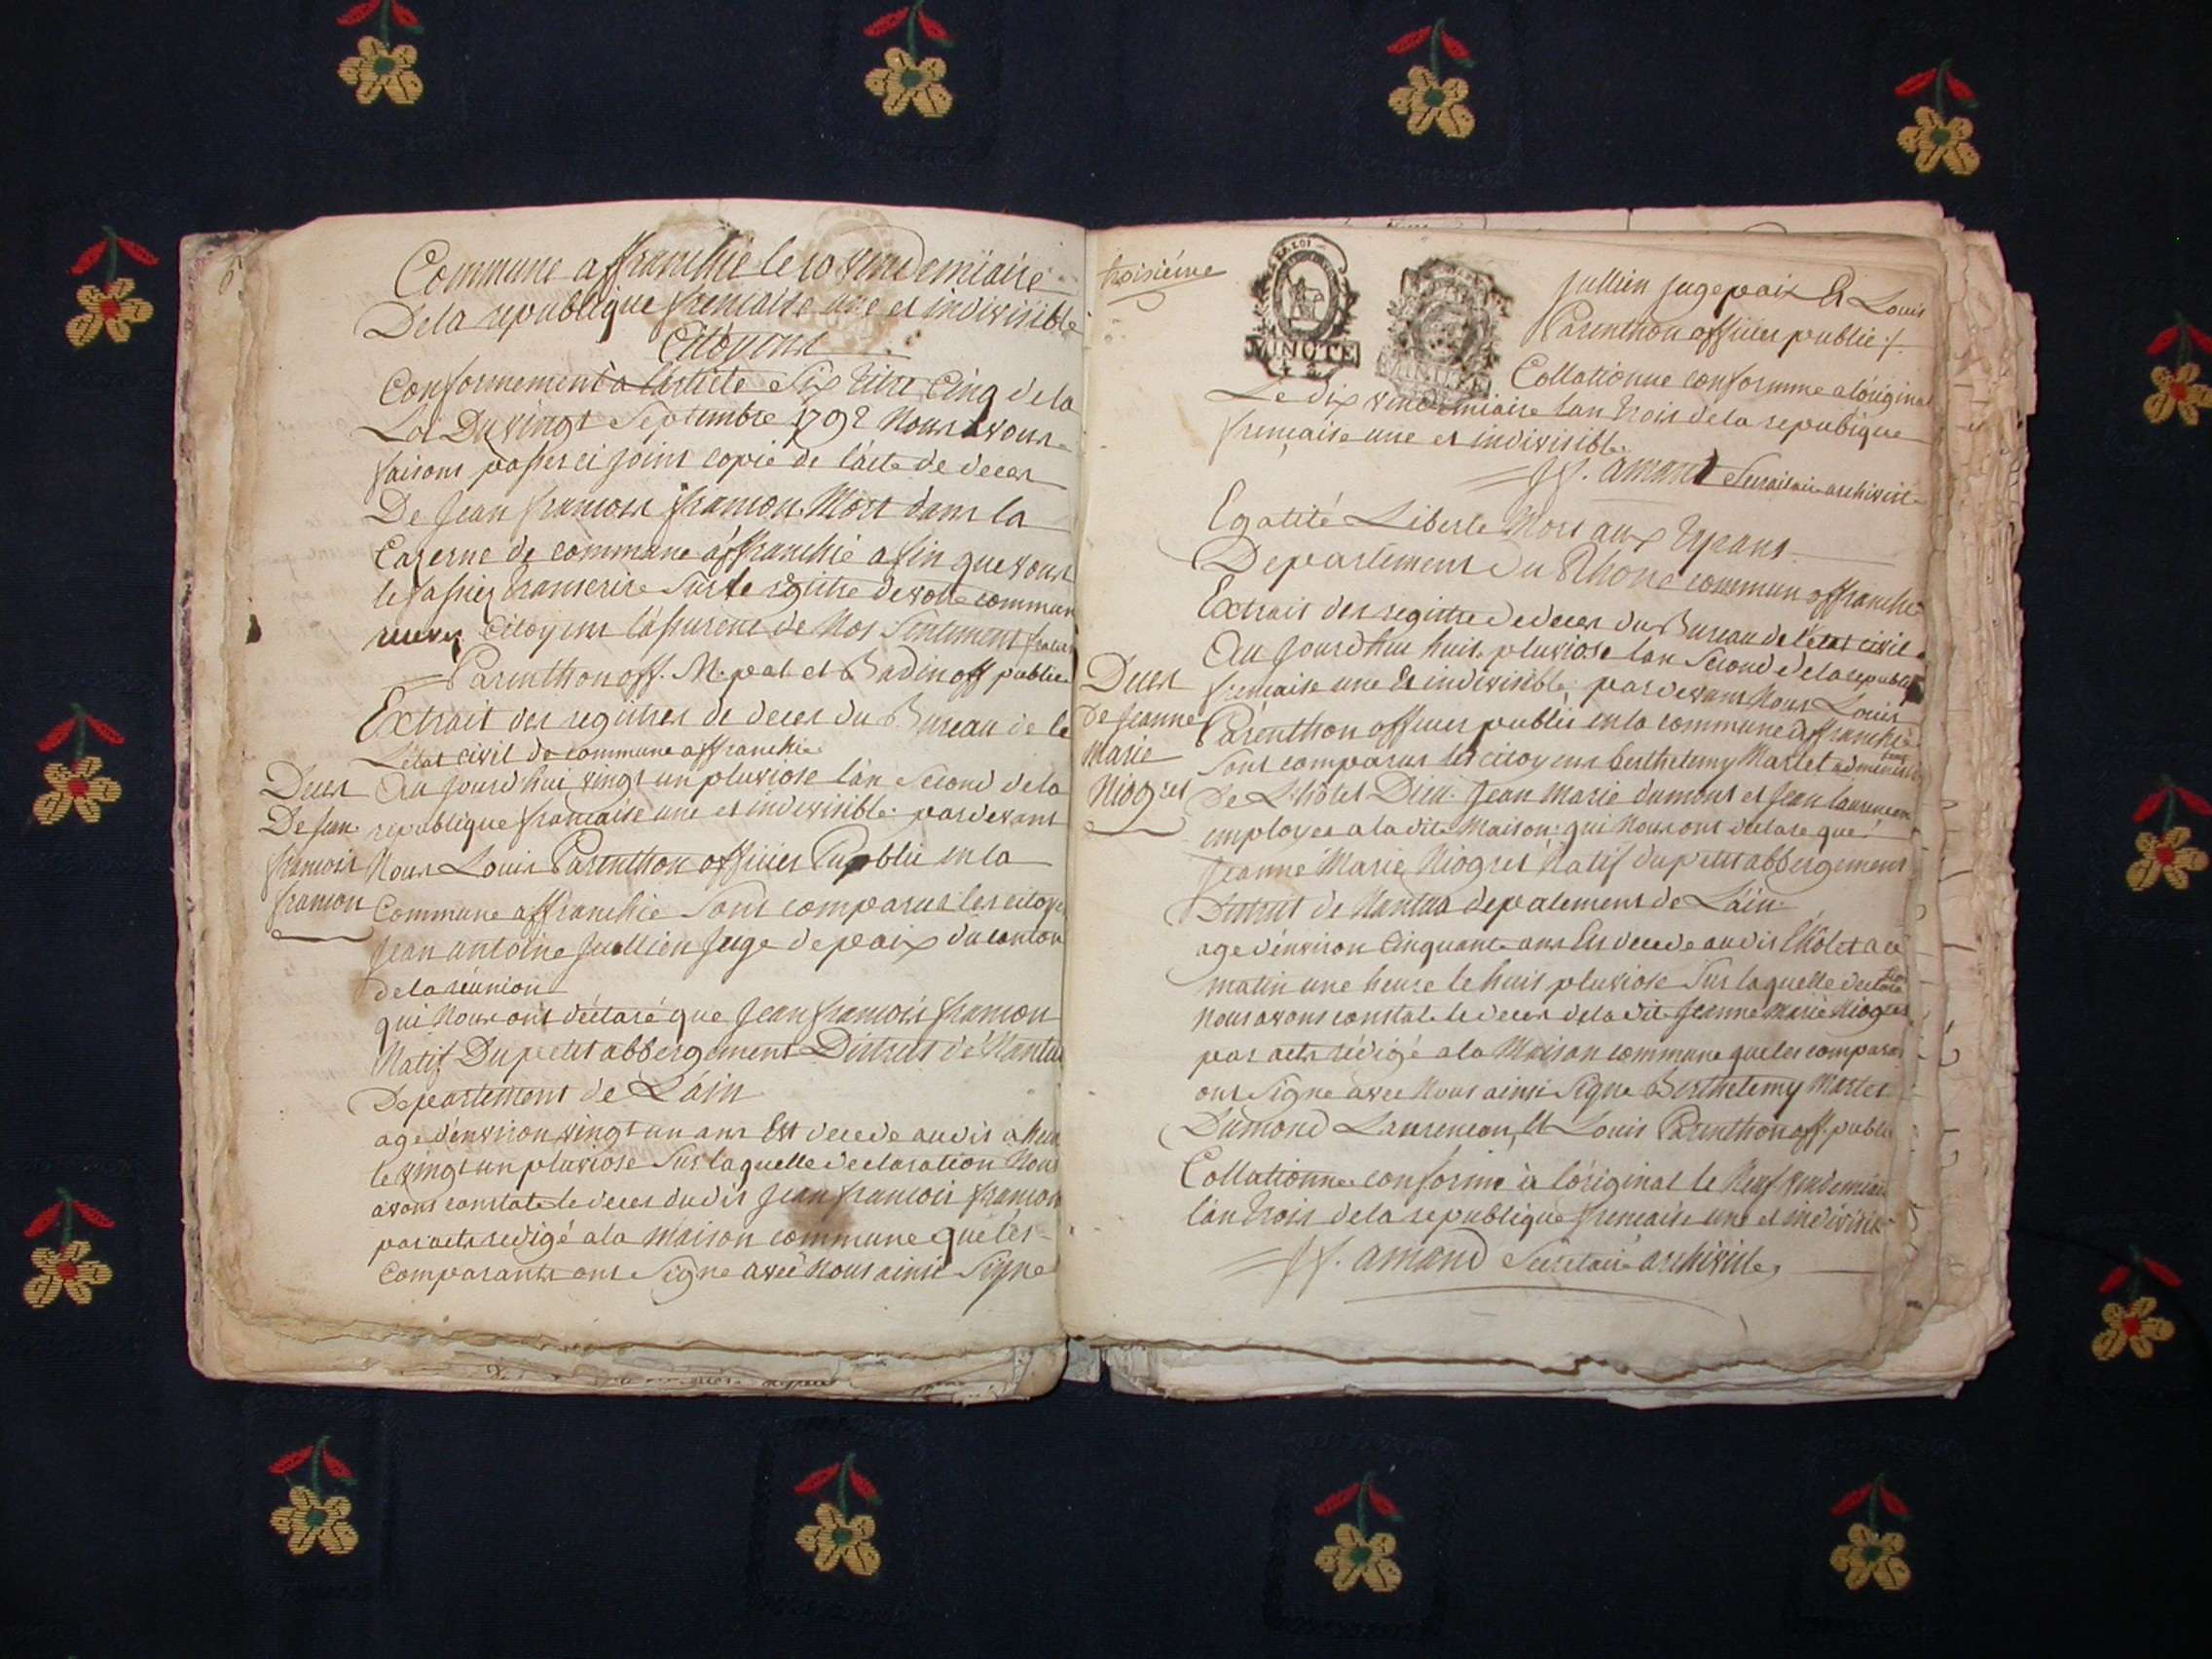 Commune affranchie le 10 vendemiaire
De la republique francaise une et indivisible
Citoyens
Conformement a larticle Six titre Cinq de la
Loi Du vingt Septembre 1792 Nous vous
faisons passer ci joint copie de lacte de deces
De Jean francois francon Mort dans la
Caserne de commune affranchie afin que vous
le fassiez transcrire Sur le registre de votre commune
recevez Citoyens lassurence de Nos Sentiment
Parenthon off. M.pal et Badin off public
Extrait des registres de deces du Bureau de le
Létat civil de commune affranchie
Deces
De Jean
francois
francon
Au Jourdhui vingt un pluviose lan Second de la
republique francaise une et indivisible par devant
Nous Louis Parenthon officier Public en la
Commune affranchie Sont comparus les citoye
Jean antoine Juollien Juge de paix du canton
de la réunion
qui Nous ont déclaré que Jean francois francon
Natif Du petit abbergement District de Nantua
Departement de Láin
age denviron vingt un ans Est decede audit a
le vingt un pluviose Sur laquelle declaration Nous
avons constate le deces dudit Jean francois francon
par acte redigé a la Maison commune que les
Comparants ont Signe avec Nous ainsi Signe
troisiéme
LA LOI
MINUTE
Jullien Juge paix Et Louis
Parenthon officier public
Collationne conformme a lóriginal
Le dix vendemiaire lan trois de la repubique
francaise une et indivisible
amand Secraitaire archiviste
Egatité Liberte Mort aux tyrans
Departement du Rhone commun affranchie
Extrait des registre de deces du Bureau de létat civil
Deces
De Jeanne
Marie
Niogret
Au Jourdhui huit pluviose lan Second de la republi
francaise une Et indivisible; par devant Nous Louis
Parenthon officier public en la commune affranchie
Sont comparus les citoyens berthelemy Martet
De Lhôtel Dieu. Jean Marie dumont et Jean laurencon
employes a la dite Maison: qui Nous ont declare que
Jeanne Marie Niogret Natif du petit abbergement
District de Nantua depatement de Láin
age dénviron Cinquante ans Est decede audit Lhôtel a ce
matin une heure le huit pluviose Sur laquelle declaration
Nous avons constate le deces de la dite Jeanne Marie Niogret
par acte rédigé a la Maison commune que les comparan
ont Signe avec Nous ainsi Signe Berthelemy Martet
Dumond Laurencon, Et Louis Parenthon off. public
Collationne conforme à lóriginal le Neuf vendemiair
lán trois de la republique francaise une et indivisible
amand Secretaire archiviste